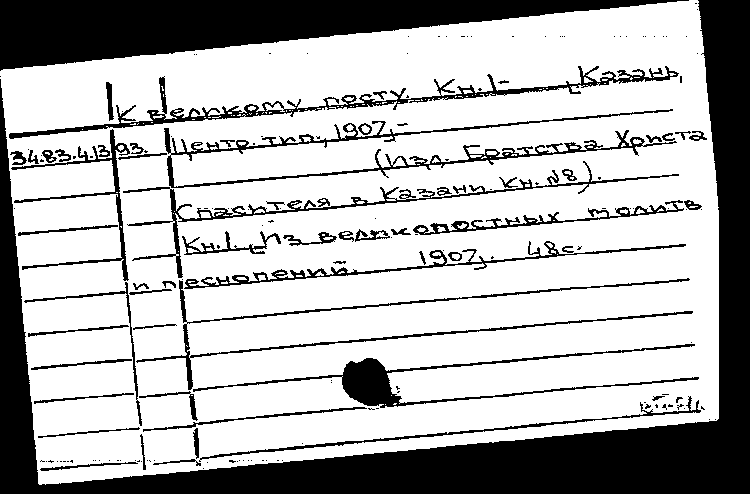 К великому посту. Кн. 1- [Казань,
34.83.4.1393. Центр. тип., 1907].-
(Изд. Братства Христа
Спасителя в Казани кн. №8).
Кн. 1. [Из великопостных молитв
и песнопений. 1907]. 48с.